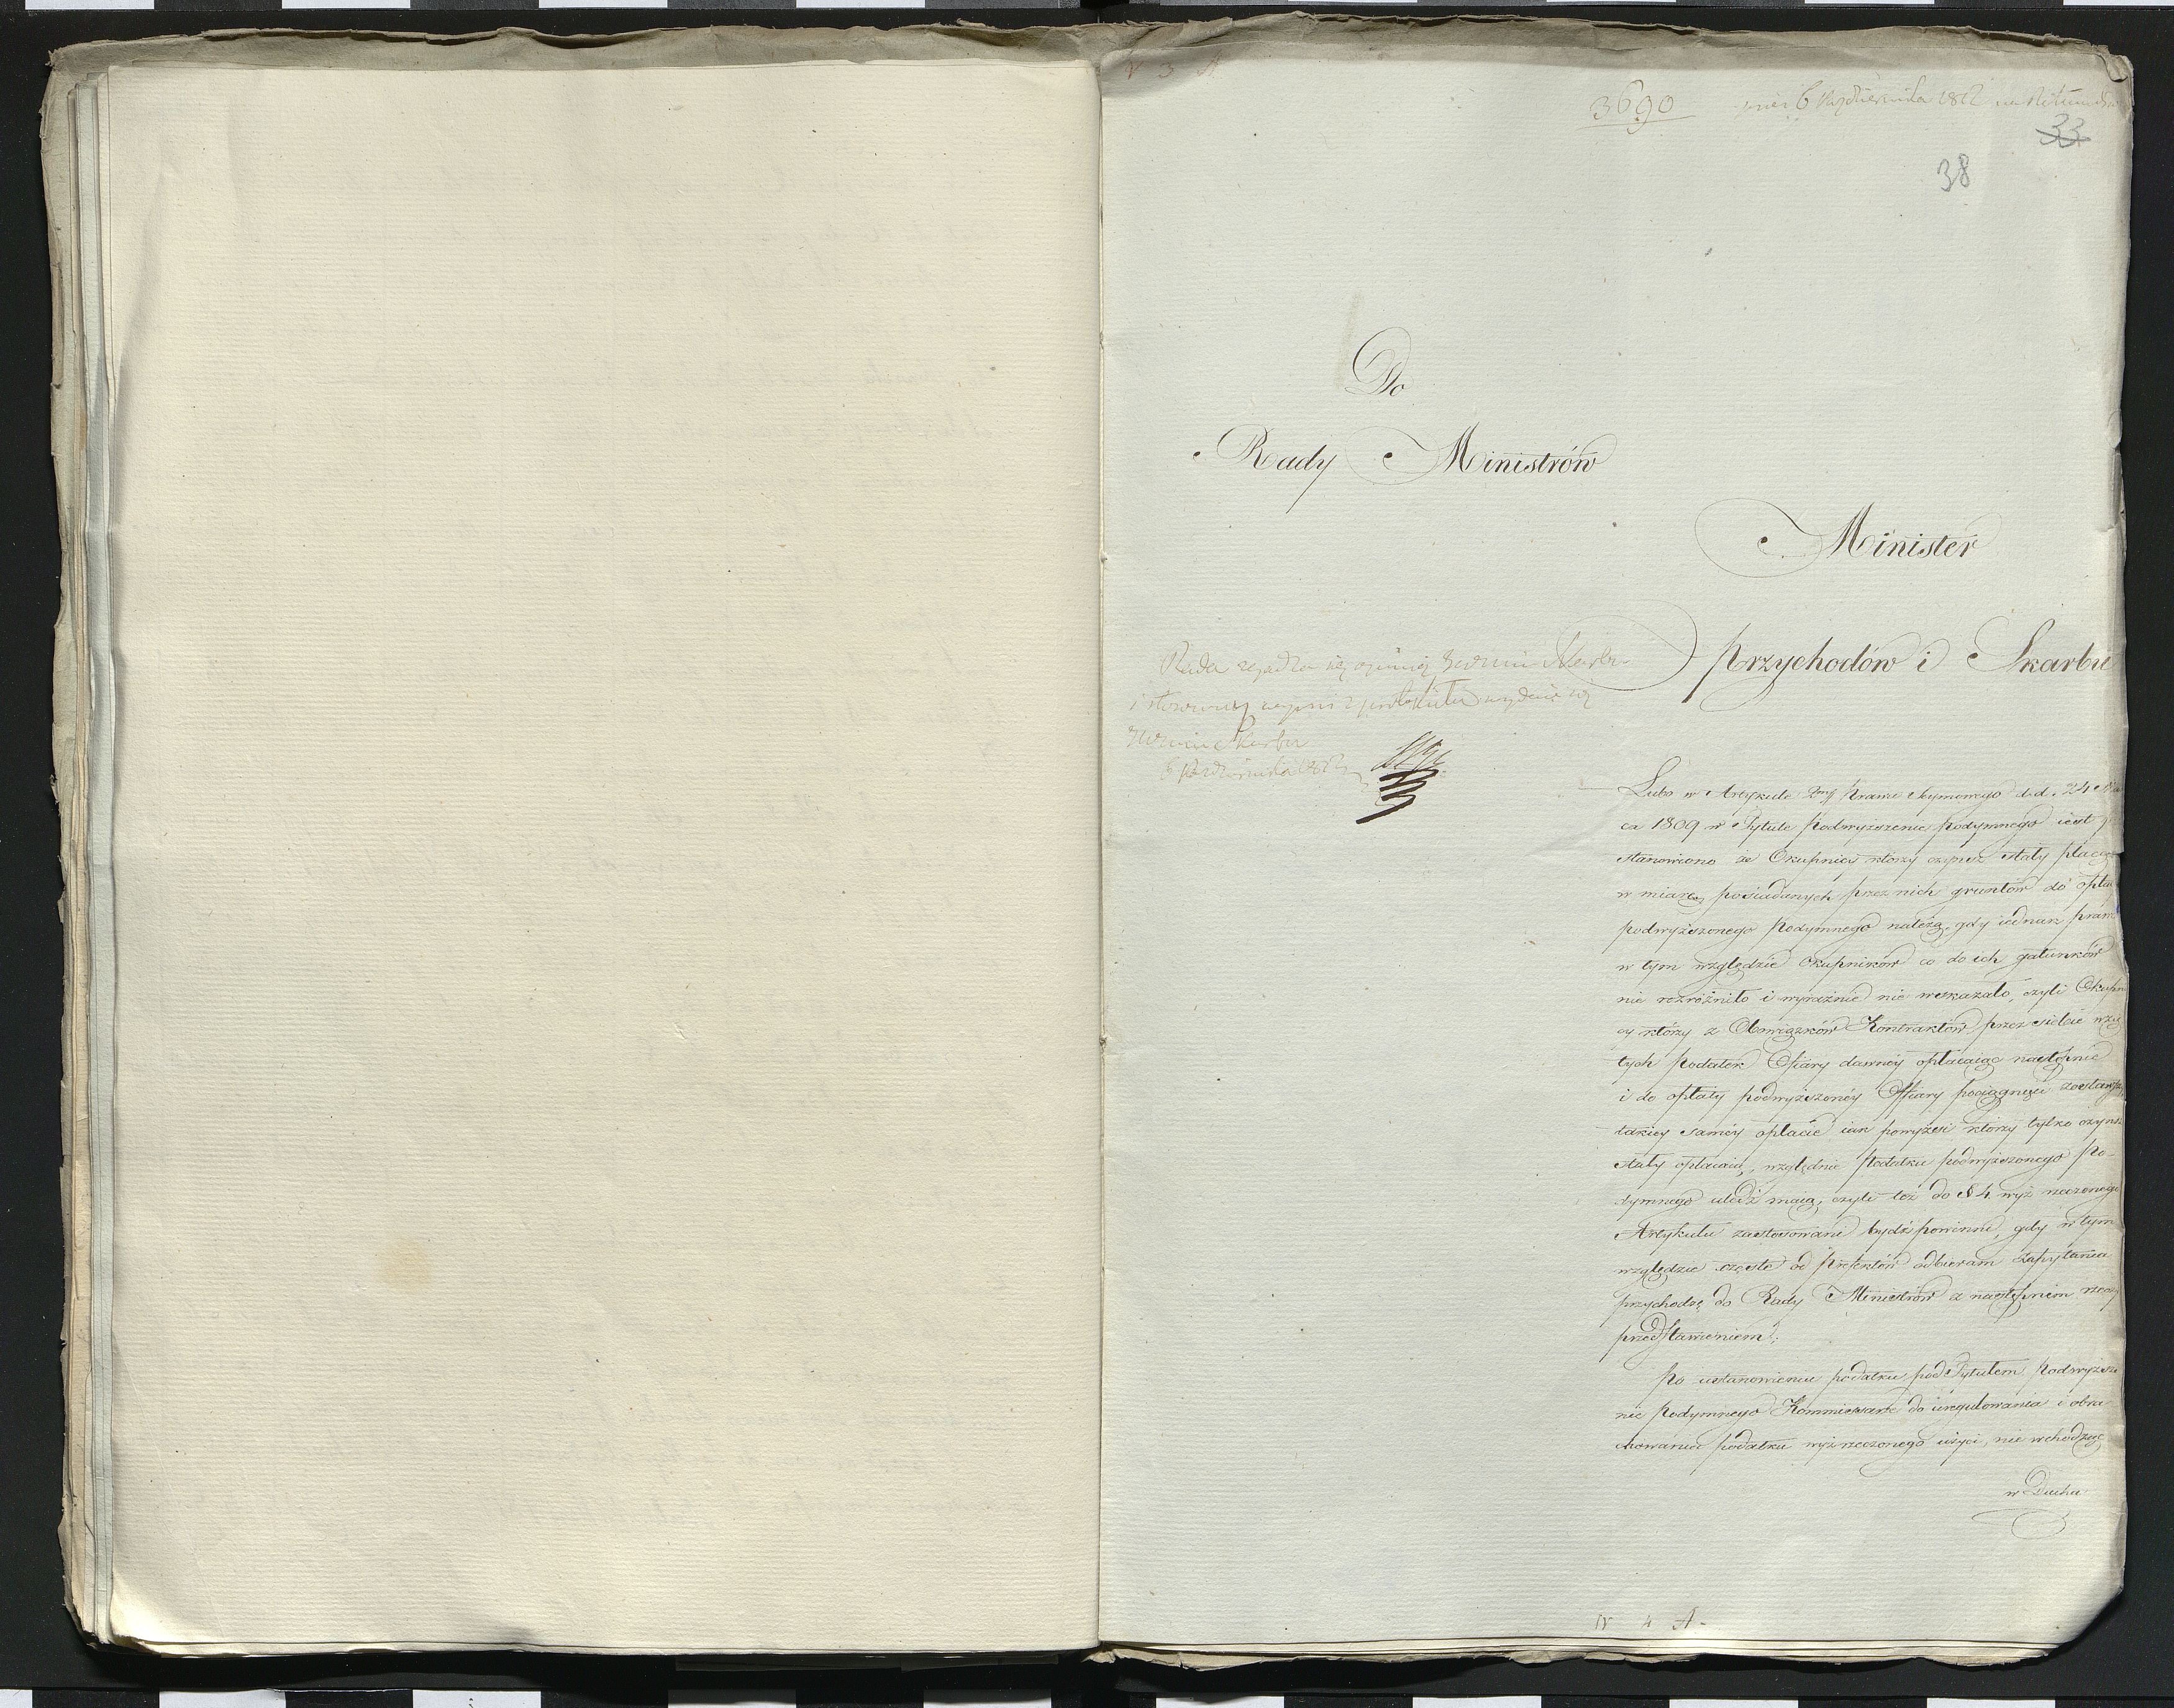 N 3 A
3690 6 Października 1812
33
38
Do
Rady Ministrów
Minister
Przychodów i Skarbu
Rada zgadza się z opinią JW Min Skarbu
i stosowny wypis z protokułu wydać się
JW Min Skarbu
6 Października 1812
Lubo w Artykule 2m Prawa Seymowego d.d. 24 Mar
ca 1809 w Tytule Podwyższenie podymnego iest p
stanowiono że Okupnicy którzy czynsz stały płacą
w miarę posiadanych przez nich gruntów do opła
podwyższonego Podymnego należą, gdy iednak praw
w tym względzie Okupników co do ich gatunków
nie rozróżniło i wyraźnie nie wskazało, czyli Okupni
cy którzy z Obowiązków Kontraktów przez siebie wzię
tych podatek Ofiary dawnéy opłacaiąc następnie
i do opłaty podwyższonéy Offiary pociągnięci zostawszy
takiéy saméy opłacie iak powyżsi którzy tylko czynsz
stały opłacaią, względnie Podatku podwyższonego Po-
dymnego uledz maią, czyli też do § 4 wyż rzeczonego
Artykułu zastosowani bydź powinni, gdy w tym
względzie częste od Prefektów odbieram zapytania
przychodzę do Rady Ministrów z następnem rzeczy
przedstawieniem;
Po ustanowieniu podatku pod Tytułem Podwyższe
nie Podymnego Kommissarze do uregulowania i obra
chowania podatku wyż rzeczonego użyci, nie wchodząc
w Ducha
N 4 A.